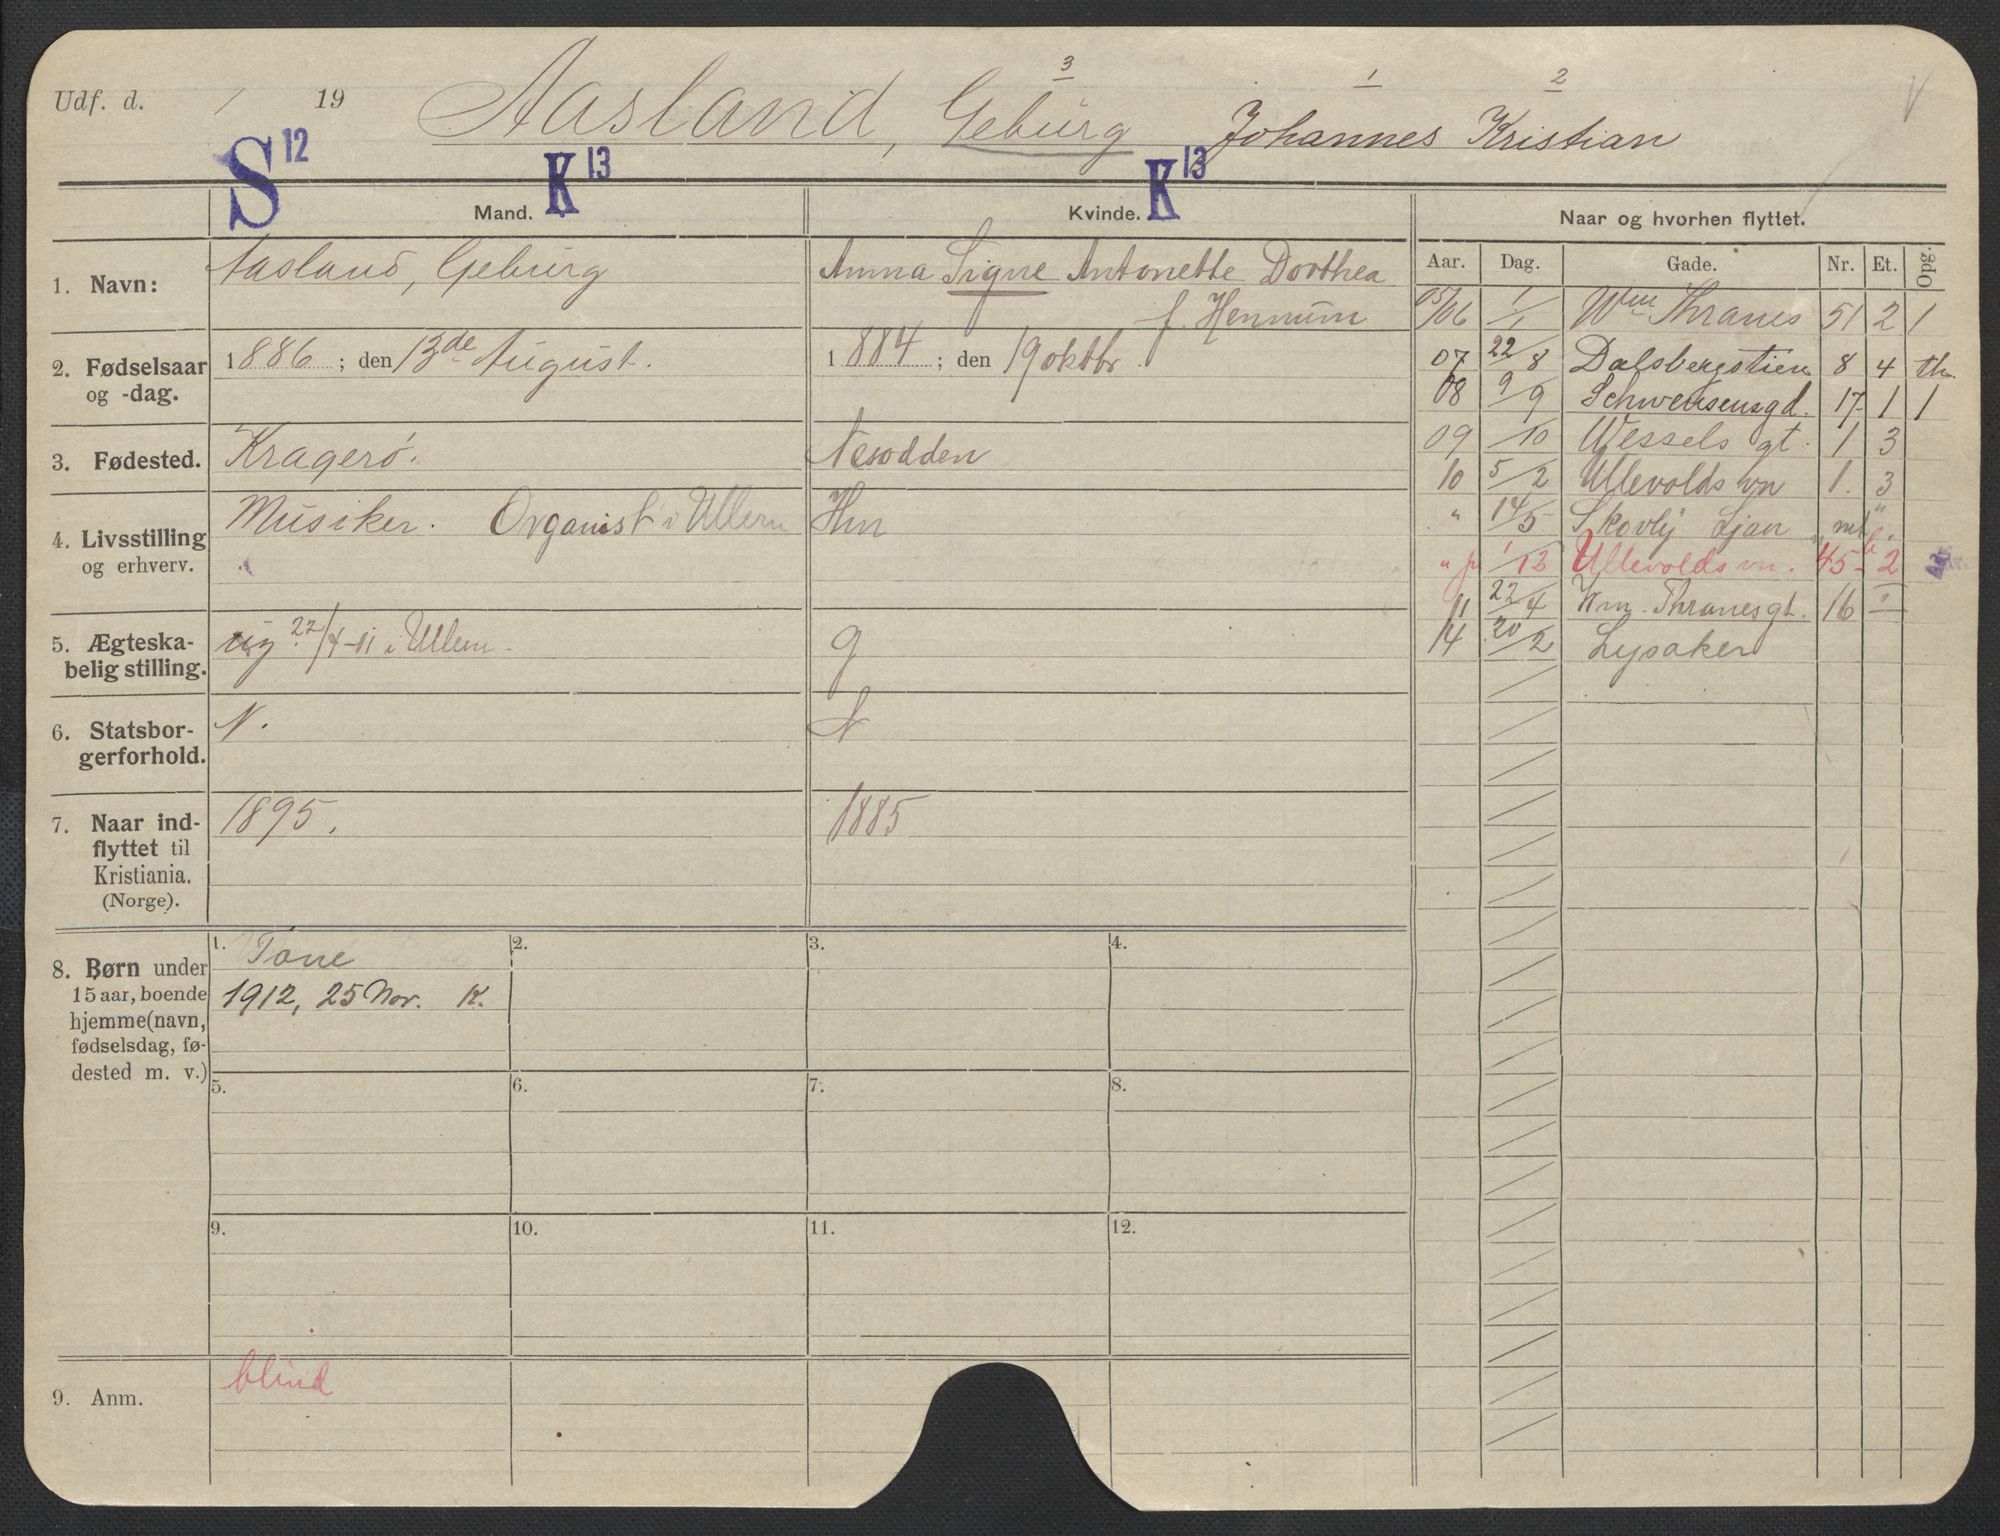 Udf. d. / 19 Aasland, Geburg Johannes Kristian
3 1 2
S 12 K 13 K 13
Mand. Kvinde. Naar og hvorhen flyttet.
Aar. Dag. Gade. Nr. Et. Opg.
1. Navn: Aasland, Geburg
Anna Signe Antonette Dorthea
f. Hennum
2. Fødselsaar og -dag.
1886 ; den 13de August.
1884 ; den 19 oktbr
3. Fødested. Kragerø. Nesodden
4. Livsstilling og erhverv.
Musiker. Organist i Ullern Hm
5. Ægteskabelig stilling.
ug 22/4-11 i Ullern. g
6. Statsborgerforhold.
N. N
7. Naar indflyttet til Kristiania. (Norge).
1895. 1885
05/06 1/1 Wm Thranes 51 2 1
07 22/8 Dalsbergstien 8 4 th.
08 9/9 Schwensensgd. 17 1 1
09 /10 Wessels gt. 1 3
10 5/2 Ullevolds vn 1. 3
" 14/5 Skovly Ljan
" 1/12 Ullevoldsvn. 45 b 2
11 22/4 Wm. Thranesgt. 16 II
14 20/2 Lysaker
8. Børn under
15 aar, boende
hjemme (navn,
fødselsdag, fø-
dested m. v.)
1. Tone 2. 3. 4.
1912, 25 Nov. K.
5. 6. 7. 8.
9. 10. 11. 12.
9. Anm. blind